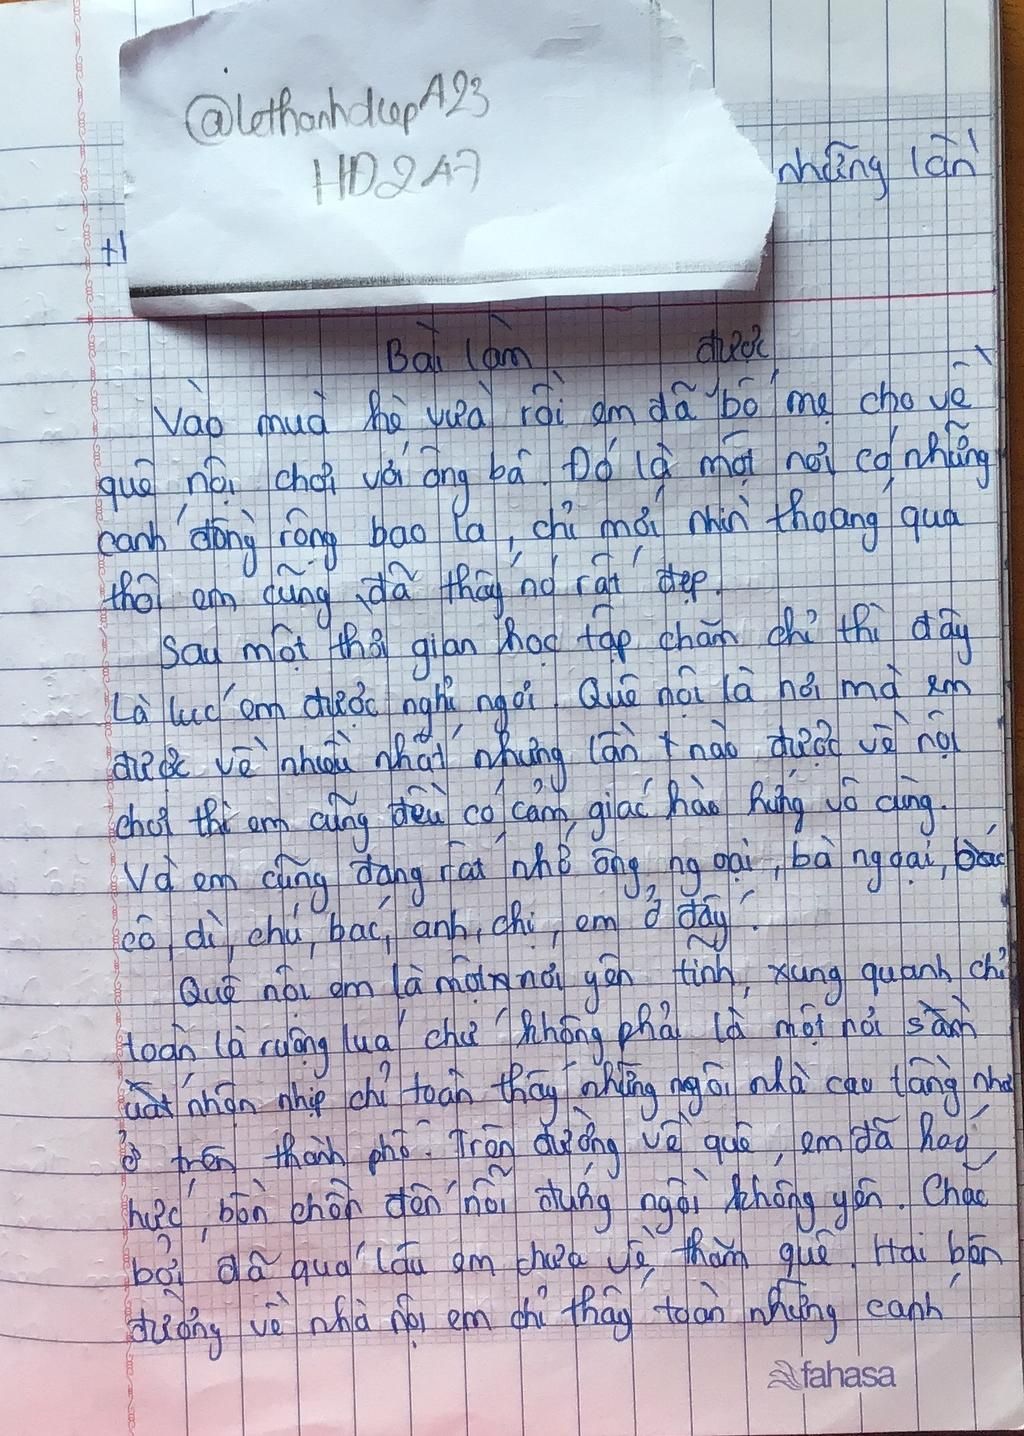 @lethanhdiepA23
HD2A7
những lần
+1
Bài làm
được
Vào muà hè vừa rồi em đã bố mẹ cho về
quê nội chơi với ông bà. Đó là một nơi có những
cánh đồng rộng bao la, chỉ mới nhìn thoáng qua
thôi em cũng đã thấy nó rất đẹp.
Sau một thời gian học tập chăm chỉ thì đây
Là lúc em được nghỉ ngơi. Quê nội là nơi mà em
được về nhiều nhất những lần nào được về nội
chơi thì em cũng đều có cảm giác hào hứng vô cùng.
Và em cũng đang rất nhớ ông ngoại, bà ngoại,
cô, dì, chú, bác, anh, chị, em ở đây.
Quê nội em là một nơi yên tĩnh, xung quanh chỉ
toàn là ruộng luá chứ không phải là một nơi
nhộn nhịp chỉ toàn thấy những ngôi nhà cao tầng như
ở trên thành phố. Trên đường về quê, em đã háo
hức, bồn chồn đến nỗi đứng ngồi không yên. Chắc
bởi đã quá lâu em chưa về thăm quê. Hai bên
đường về nhà nội em chỉ thấy toàn những cánh
fahasa